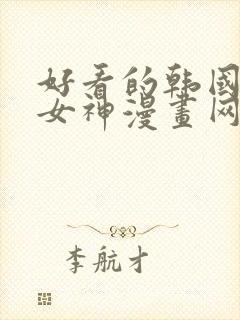 好看的韩国
女神漫畫网
李航才